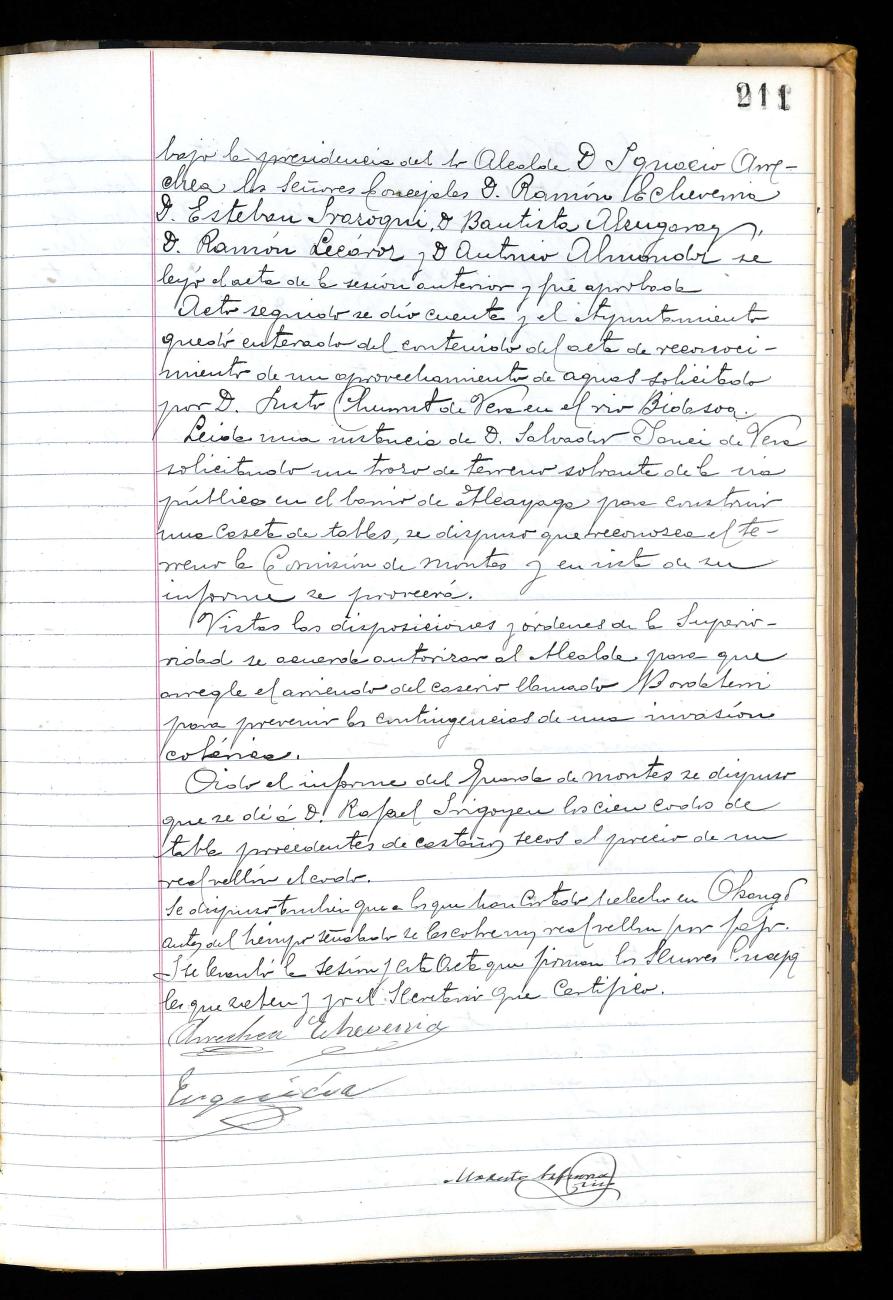 211
bajo la presidencia del Sr Alcalde D Ignacio Arre-
chea los Señores Concejales D. Ramón Echeverria
D. Esteban Irazoqui, D Bautista Alzugaray,
D. Ramón Lecároz y D Antonio Almandoz se
leyó el acta de la sesión anterior y fué aprobada
Acto seguido se dió cuenta y el Ayuntamiento
quedó enterado del contenido del acta de reconoci-
miento de un aprovechamiento de aguas solicitado
por D. Justo de Vera en el rio Bidasoa.
Leida una instancia de D. Salvador de Vera
solicitando un trozo de terreno sobrante de la via
pública en el barrio de Alcayaga para construir
una caseta de tabla, se dispuso que reconozca el te-
rreno la Comisión de montes y en vista de su
informe se proveerá.
Vistas las disposiciones y órdenes de la Superio-
ridad se acuerda autorizar al Alcalde para que
arregle el arriendo del caserio llamado
para prevenir las contingencias de una invasión
colérica.
Oido el informe del Guarda de montes se dispuso
que se dé á D. Rafael Irigoyen los cien codos de
tabla procedentes de castaños secos al precio de un
real vellón el codo.
Se dispuso tambien que a los que han cortado helecho en
antes del tiempo señalado se les cobre un real vellon por fajo.
Y se levantó la sesión y esta acta que firman los Señores Conceja
les que saben y yo el Secretario que Certifico.
Arrechea Echeverria